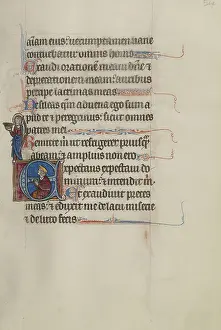 aīam eius: uerumptamen uane
conturbatur omnis homo
Exaudi orationem meam dñe &
deprecationem meam: auribus
percipe lacrimas meas
Ne sileas qm̄ aduena ego sum
apud te et peregrinus: sicut omnes
patres mei
Remitte m̄ ut refrigerer priusq̄
abeam: & amplius non ero
Expectans expectaui do
minum: et intendit m̄
Et exaudiuit preces
meas: & eduxit me de lacu miserie
& de luto fecis